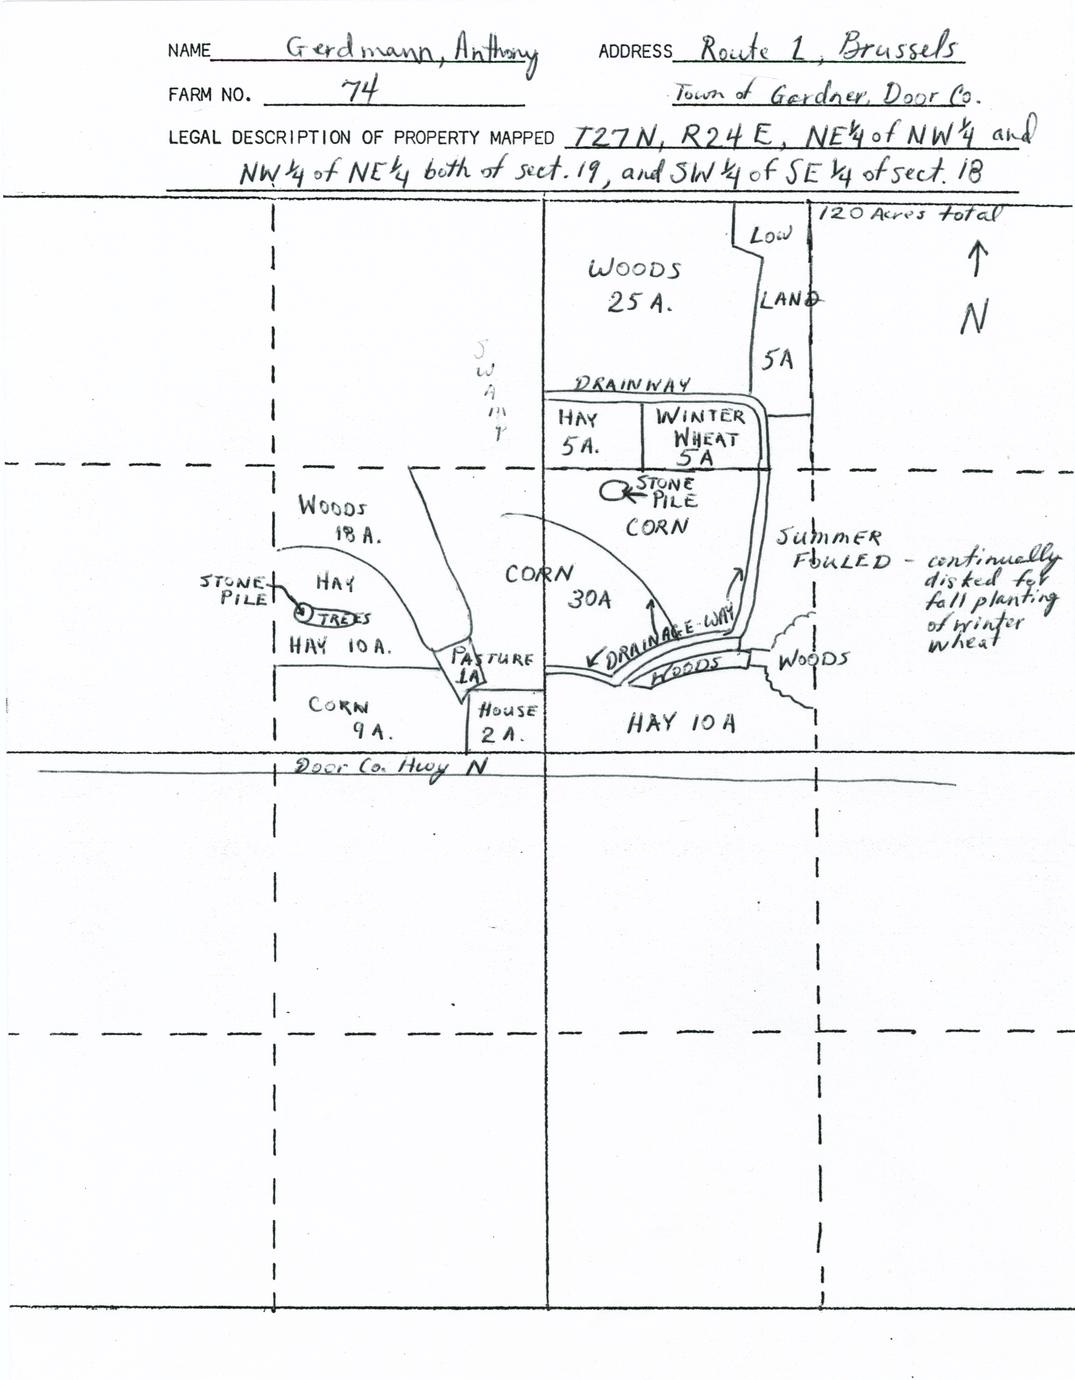 NAME Gerdmann, Anthony ADDRESS Route 1, Brussels
FARM NO. 74 Town of Gardner, Door Co.
LEGAL DESCRIPTION OF PROPERTY MAPPED T27N, R24E, NE¼ of NW¼ and
NW¼ of NE¼ both of sect. 19, and SW¼ of SE¼ of sect. 18
120 Acres total
LOW
LAND
5A
WOODS
25 A.
N
SWAMP
DRAINWAY
HAY
5A.
WINTER
WHEAT
5A
STONE
PILE
CORN
WOODS
18 A.
SUMMER
FOULED - continually
disked for
fall planting
of winter
wheat
CORN
30A
STONE
PILE
HAY
TREES
HAY 10 A.
DRAINAGE-WAY
PASTURE
1A
WOODS
WOODS
CORN
9 A.
HOUSE
2 A.
HAY 10 A
Door Co. Hwy N